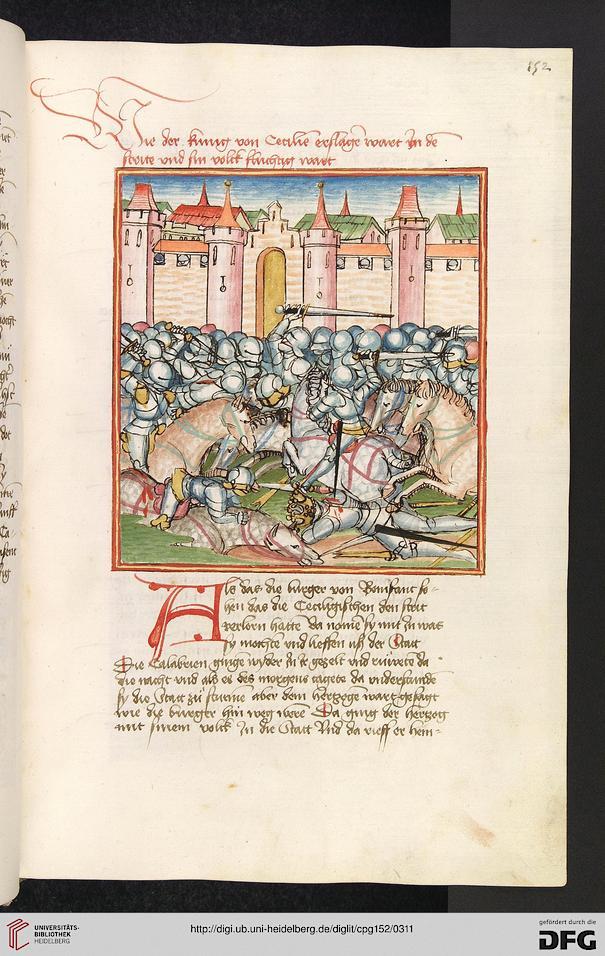 152
Wie der kúnig von Cecilie erslagē wart in dē
strite vnd sin volck flúchtig wart
Als das die burger von Bonifant so-
hen das die Ceciligischen den strit
verlorn hatte da nomē sy mit in was
sy mochte vnd lieffen uß der Statt
Die Calabrien ginge wyder in ir gezelt vnd ruwete da
die nacht vnd als es des morgens tagete da vnderstunde
sy die Statt zů sturme aber dem hertzoge wart gesagt
wie die burger hin weg were Da ging der hertzog
mit sinem volck In die Statt Vnd da rieff er hein-
UNIVERSITÄTS-
BIBLIOTHEK
HEIDELBERG
http://digi.ub.uni-heidelberg.de/diglit/cpg152/0311
gefördert durch die
DFG